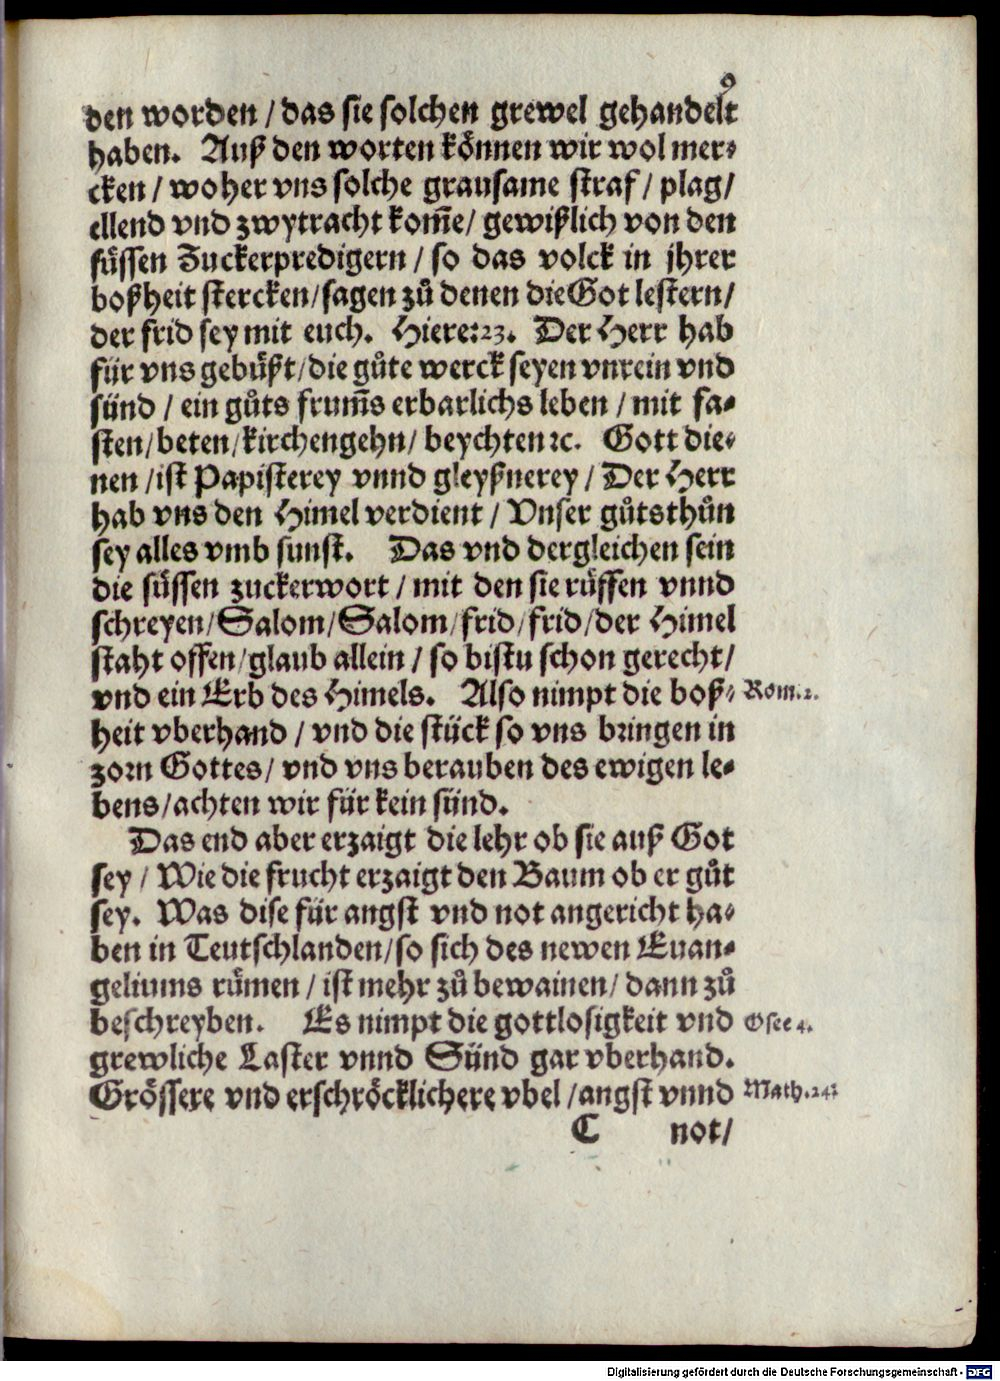 9
den worden / das sie solchen grewel gehandelt
haben. Auß den worten können wir wol mer⸗
cken / woher vns solche grausame straf / plag /
ellend vnd zwytracht kom̃e / gewißlich von den
süssen Zuckerpredigern / so das volck in jhrer
boßheit stercken / sagen zů denen die Got lestern /
der frid sey mit euch. Hiere: 23. Der Herr hab
für vns gebüßt / die gůte werck seyen vnrein vnd
sünd / ein gůts frum̃s erbarlichs leben / mit fa⸗
sten / beten / kirchengehn / beychten ꝛc. Gott die⸗
nen / ist Papisterey vnnd gleyßnerey / Der Herr
hab vns den Himel verdient / Vnser gůtsthůn
sey alles vmb sunst. Das vnd dergleichen sein
die süssen zuckerwort / mit den sie rüffen vnnd
schreyen / Salom / Salom / frid / frid / der Himel
staht offen / glaub allein / so bistu schon gerecht /
vnd ein Erb des Himels. Also nimpt die boß⸗ Rom. 2.
heit vberhand / vnd die stück so vns bringen in
zorn Gottes / vnd vns berauben des ewigen le⸗
bens / achten wir für kein sünd.
Das end aber erzaigt die lehr ob sie auß Got
sey / Wie die frucht erzaigt den Baum ob er gůt
sey. Was dise für angst vnd not angericht ha⸗
ben in Teutschlanden / so sich des newen Euan⸗
geliums rümen / ist mehr zů bewainen / dann zů
beschreyben. Es nimpt die gottlosigkeit vnd Osee 4.
grewliche Laster vnnd Sünd gar vberhand.
Grössere vnd erschröcklichere vbel / angst vnnd Math. 24.
C not /
Digitalisierung gefördert durch die Deutsche Forschungsgemeinschaft - DFG